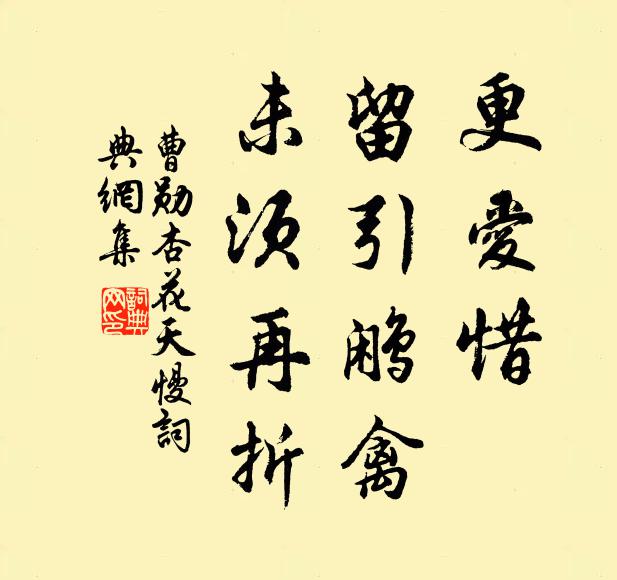 更愛惜
留引鹇禽
未须再折
曹勋杏花天慢詞
典網集
詞典網印